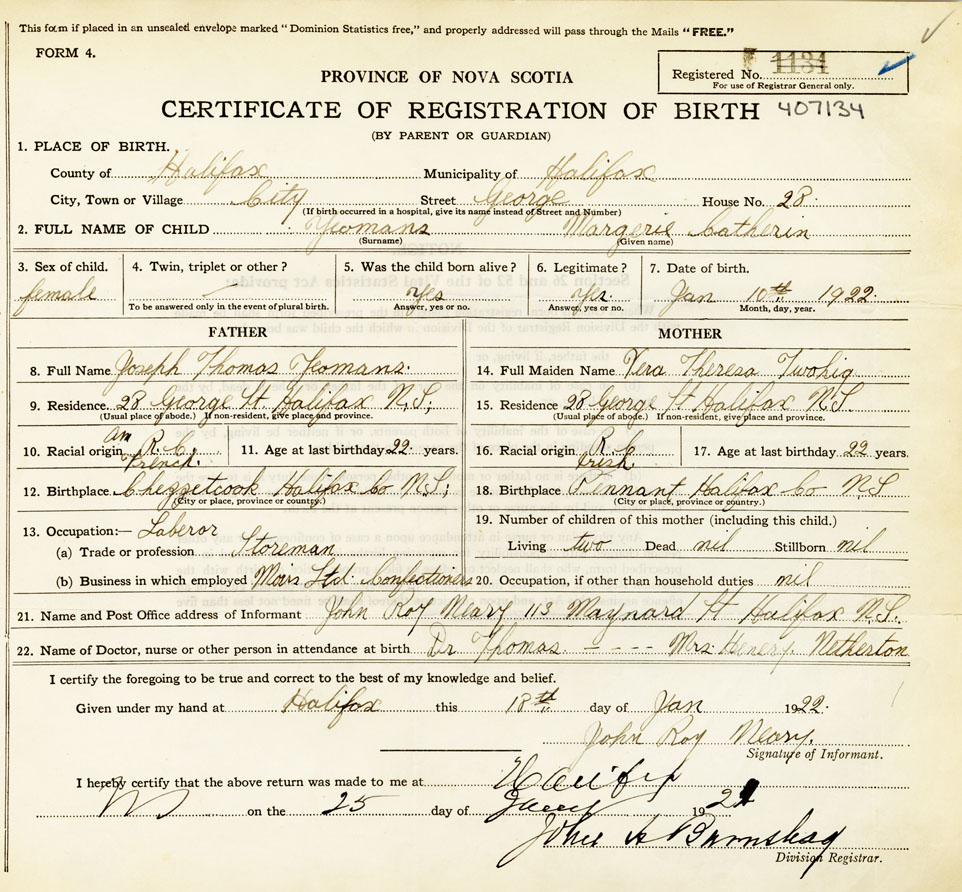 This form if placed in an unsealed envelope marked "Dominion Statistics free," and properly addressed will pass through the Mails "FREE."
FORM 4.
Registered No. 1134
For use of Registrar General only.
PROVINCE OF NOVA SCOTIA
CERTIFICATE OF REGISTRATION OF BIRTH 407134
(BY PARENT OR GUARDIAN)
1. PLACE OF BIRTH.
County of Halifax Municipality of Halifax
City, Town or Village City Street George House No. 28.
(If birth occurred in a hospital, give its name instead of Street and Number)
2. FULL NAME OF CHILD Yeomans Margerie Catherin
(Surname) (Given name)
3. Sex of child. 4. Twin, triplet or other? 5. Was the child born alive? 6. Legitimate? 7. Date of birth.
female — Yes Yes Jan 10th 1922.
To be answered only in the event of plural birth. Answer, yes or no. Answer, yes or no. Month, day, year.
FATHER MOTHER
8. Full Name Joseph Thomas Yeomans. 14. Full Maiden Name Vera Theresa Twohig
9. Residence. 28 George St. Halifax N.S; 15. Residence 28 George St Halifax N.S.
(Usual place of abode.) If non-resident, give place and province. (Usual place of abode.) If non-resident, give place and province.
10. Racial origin R.C. French. 11. Age at last birthday 22. years. 16. Racial origin R.C Irish. 17. Age at last birthday 22 years.
12. Birthplace Chezzetcook Halifax Co N.S; 18. Birthplace Pennant Halifax Co N.S
(City or place, province or country.) (City or place, province or country.)
13. Occupation:— Laberor 19. Number of children of this mother (including this child.)
(a) Trade or profession Storeman Living two Dead nil Stillborn nil
(b) Business in which employed Moirs Ltd. Confectioners 20. Occupation, if other than household duties nil
21. Name and Post Office address of Informant John Roy Neary 113 Maynard St Halifax N.S.
22. Name of Doctor, nurse or other person in attendance at birth Dr Thomas. - - - - Mrs. Henery. Netherton
I certify the foregoing to be true and correct to the best of my knowledge and belief.
Given under my hand at Halifax this 18th day of Jan 1922.
John Roy Neary.
Signature of Informant.
I hereby certify that the above return was made to me at Halifax
on the 25 day of 19
John A
Division Registrar.